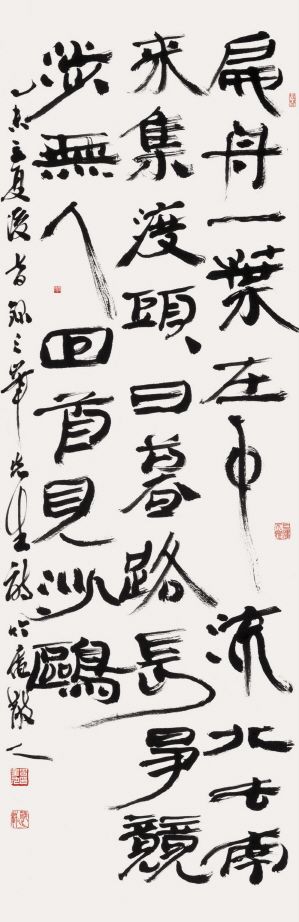 扁舟一葉在中流北去南
來集渡頭、日暮路長爭競
涉無人回首見沙鷗
乙未立夏後書錄之華先生詩
散人